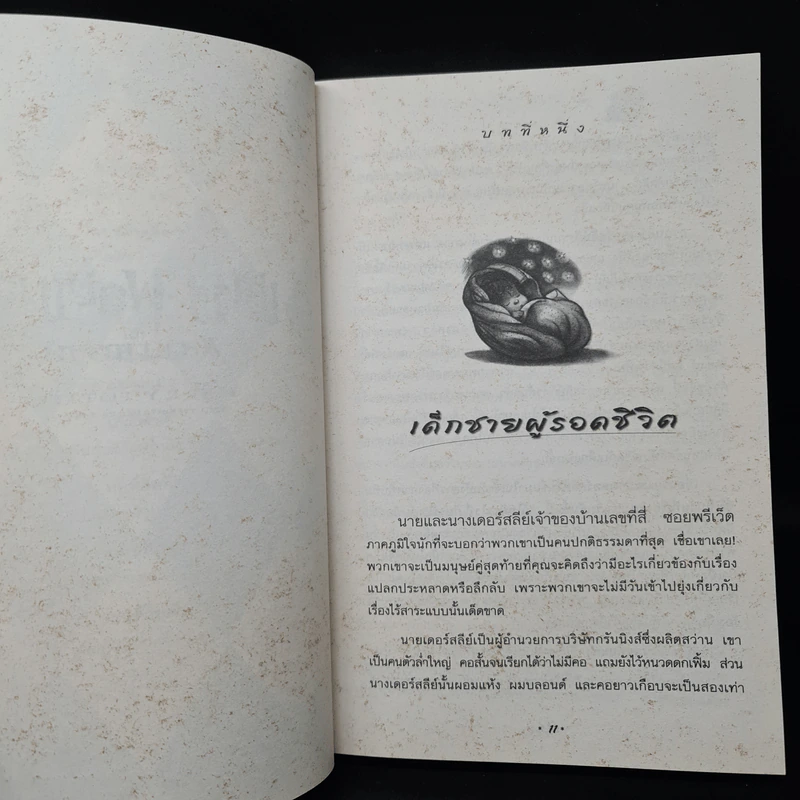 บทที่หนึ่ง
เด็กชายผู้รอดชีวิต
นายและนางเดอร์สลีย์เจ้าของบ้านเลขที่สี่ ซอยพรีเว็ต
ภาคภูมิใจนักที่จะบอกว่าพวกเขาเป็นคนปกติธรรมดาที่สุด เชื่อเขาเลย!
พวกเขาจะเป็นมนุษย์คู่สุดท้ายที่คุณจะคิดถึงว่ามีอะไรเกี่ยวข้องกับเรื่อง
แปลกประหลาดหรือลึกลับ เพราะพวกเขาจะไม่มีวันเข้าไปยุ่งเกี่ยวกับ
เรื่องไร้สาระแบบนั้นเด็ดขาด
นายเดอร์สลีย์เป็นผู้อำนวยการบริษัทกรันนิงส์ซึ่งผลิตสว่าน เขา
เป็นคนตัวล่ำใหญ่ คอสั้นจนเรียกได้ว่าไม่มีคอ แถมยังไว้หนวดดกเฟิ้ม ส่วน
นางเดอร์สลีย์นั้นผอมแห้ง ผมบลอนด์ และคอยาวเกือบจะเป็นสองเท่า
• 11 •